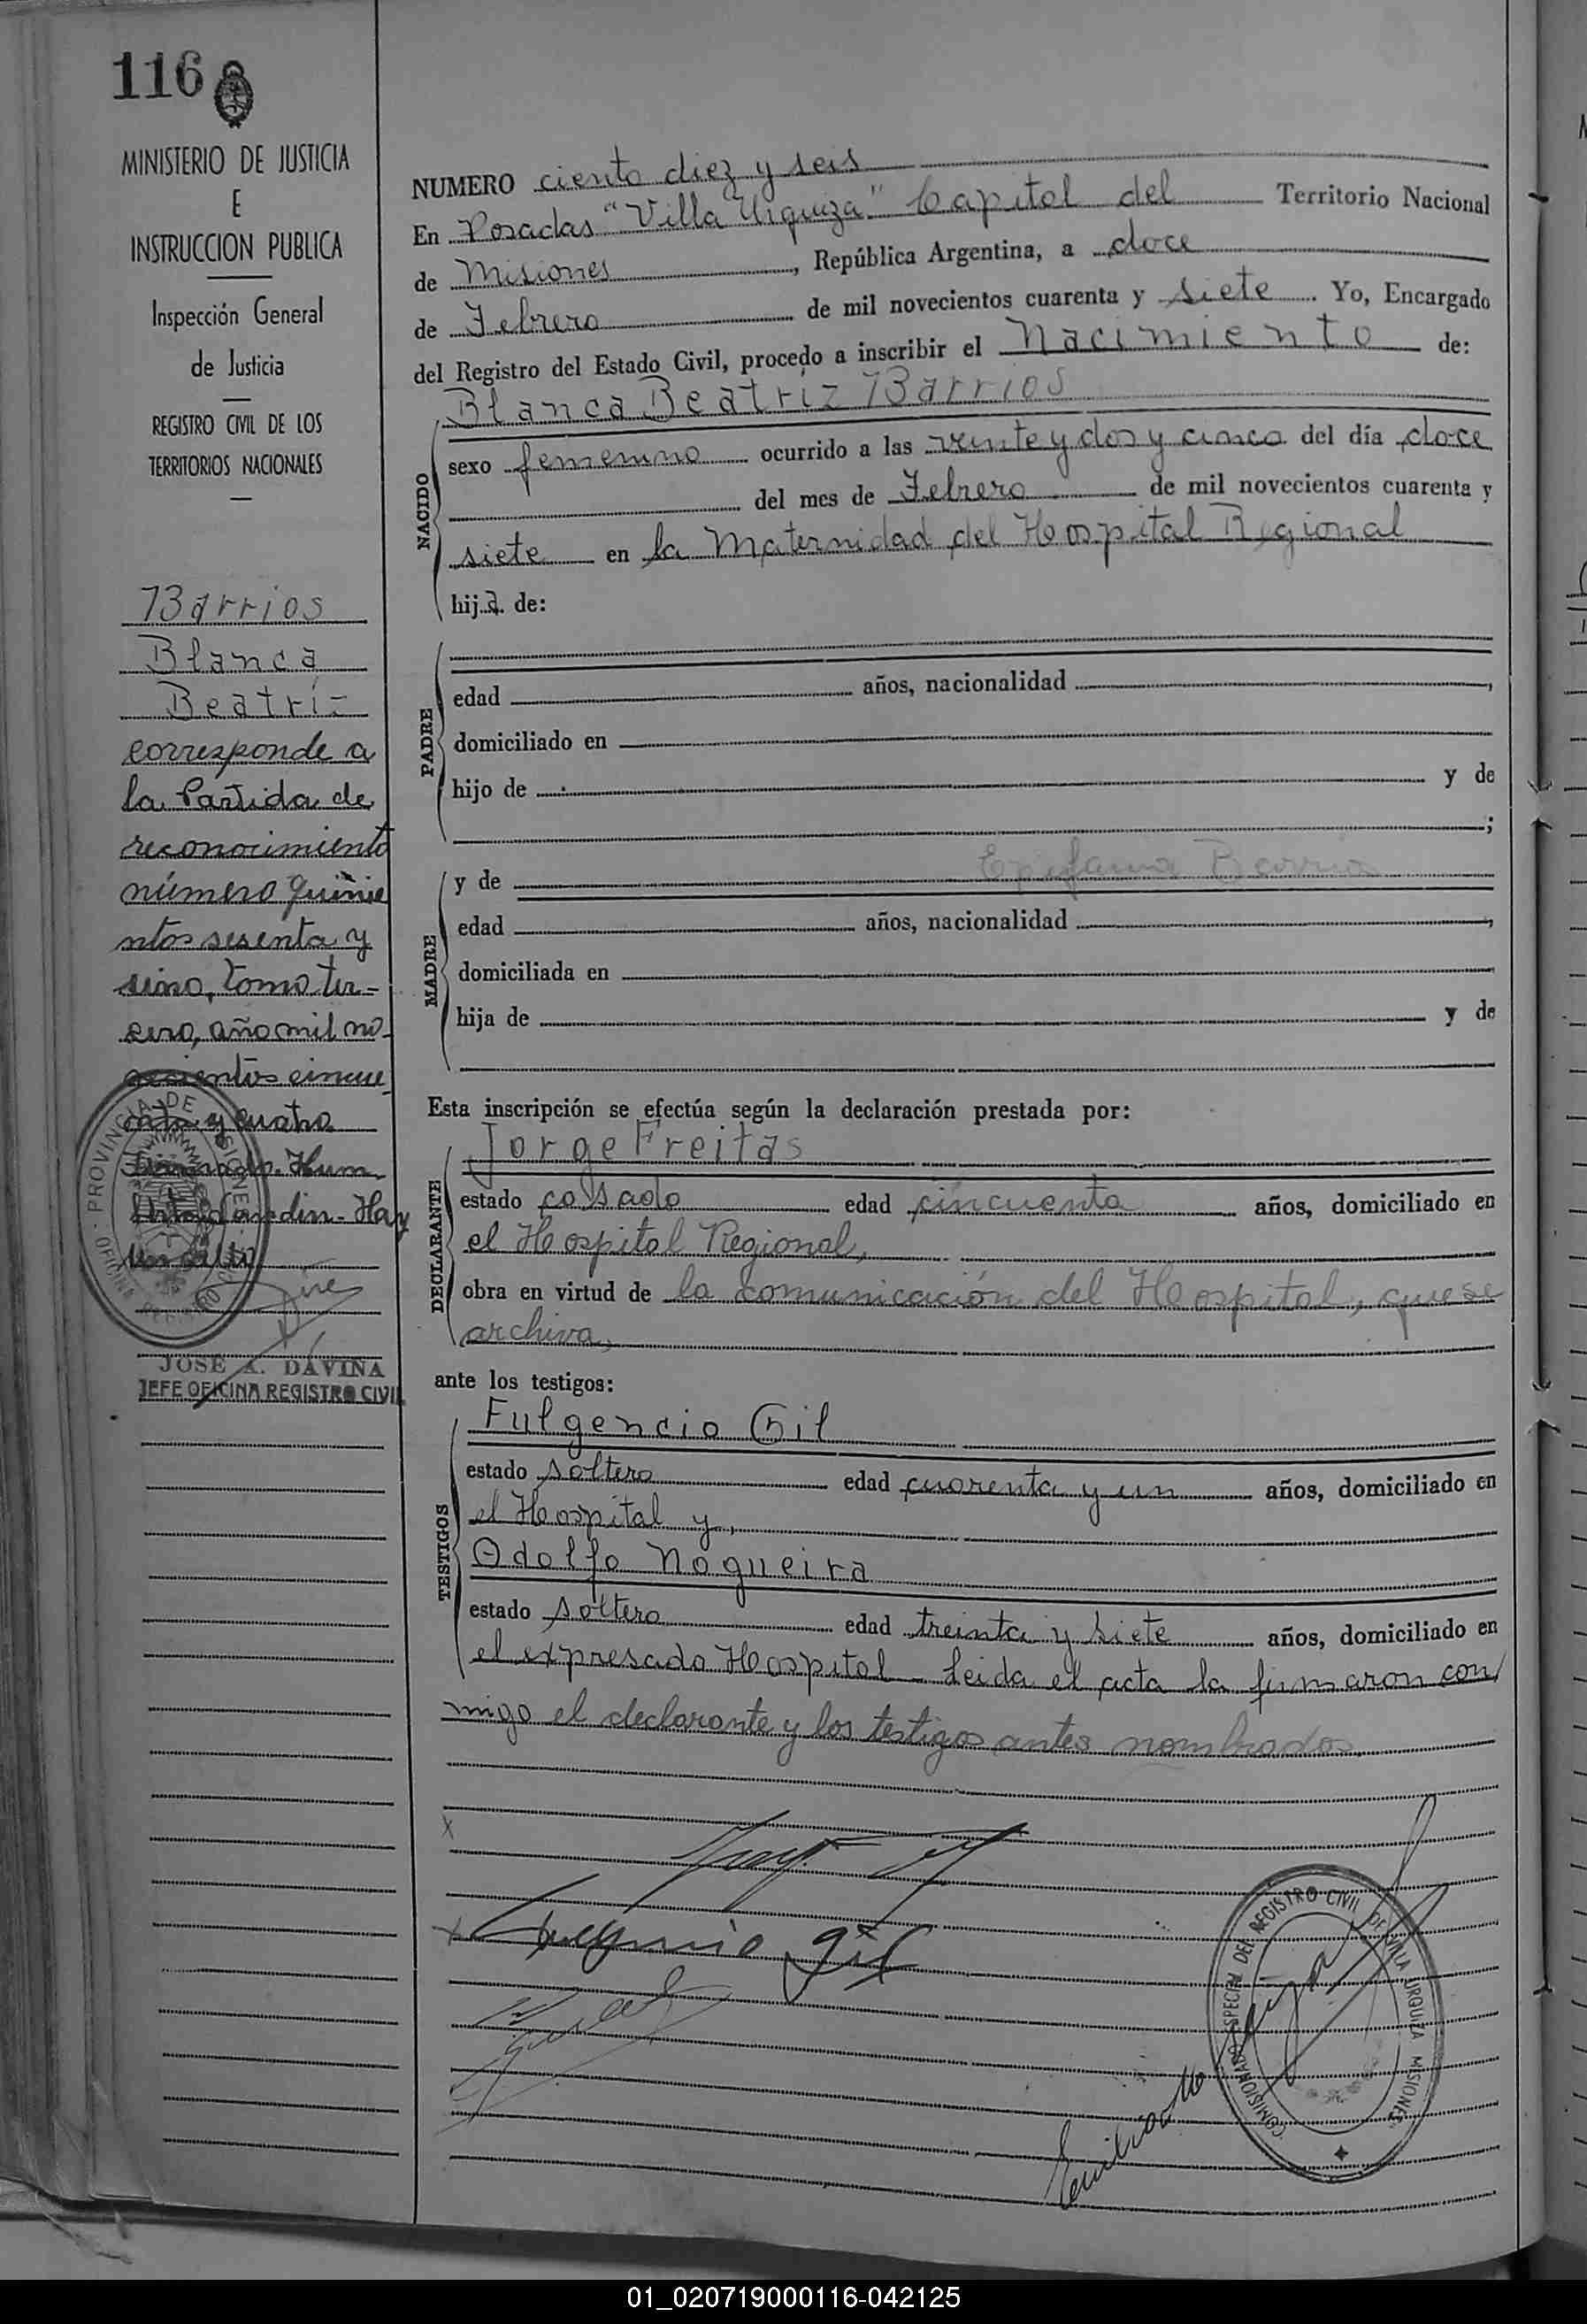 116
MINISTERIO DE JUSTICIA
E
INSTRUCCION PUBLICA
Inspección General
de Justicia
REGISTRO CIVIL DE LOS
TERRITORIOS NACIONALES
Barrios
Blanca
Beatriz
corresponde a
la Partida de
reconocimiento
número quinie
ntos sesenta y
cinco, tomo ter-
cero, año mil no-
vecientos cincue
nta y cuatro
Hay
un sello
PROVINCIA DE MISIONES
OFICINA DE REGISTRO CIVIL
JOSE A. DAVIÑA
JEFE OFICINA REGISTRO CIVIL
NUMERO ciento diez y seis
En Posadas "Villa Urquiza" Capital del Territorio Nacional
de Misiones, República Argentina, a doce
de Febrero de mil novecientos cuarenta y siete. Yo, Encargado
del Registro del Estado Civil, procedo a inscribir el Nacimiento de:
Blanca Beatriz Barrios
NACIDO
sexo femenino ocurrido a las veinte y dos y cinco del día doce
del mes de Febrero de mil novecientos cuarenta y
siete en la Maternidad del Hospital Regional
hija de:
PADRE
edad años, nacionalidad ,
domiciliado en
hijo de y de
;
MADRE
y de Epifania Barrios
edad años, nacionalidad ,
domiciliada en
hija de y de
Esta inscripción se efectúa según la declaración prestada por:
DECLARANTE
Jorge Freitas
estado casado edad cincuenta años, domiciliado en
el Hospital Regional,
obra en virtud de la comunicación del Hospital, que se
archiva,
ante los testigos:
TESTIGOS
Fulgencio Gil
estado soltero edad cuarenta y un años, domiciliado en
el Hospital y,
Adolfo Nogueira
estado soltero edad treinta y siete años, domiciliado en
el expresado Hospital - Leida el acta la firmaron con
migo el declarante y los testigos antes nombrados
x
x Fulgencio Gil
COMISIONADO ESPECIAL DEL REGISTRO CIVIL DE VILLA URQUIZA MISIONES
01_020719000116-042125